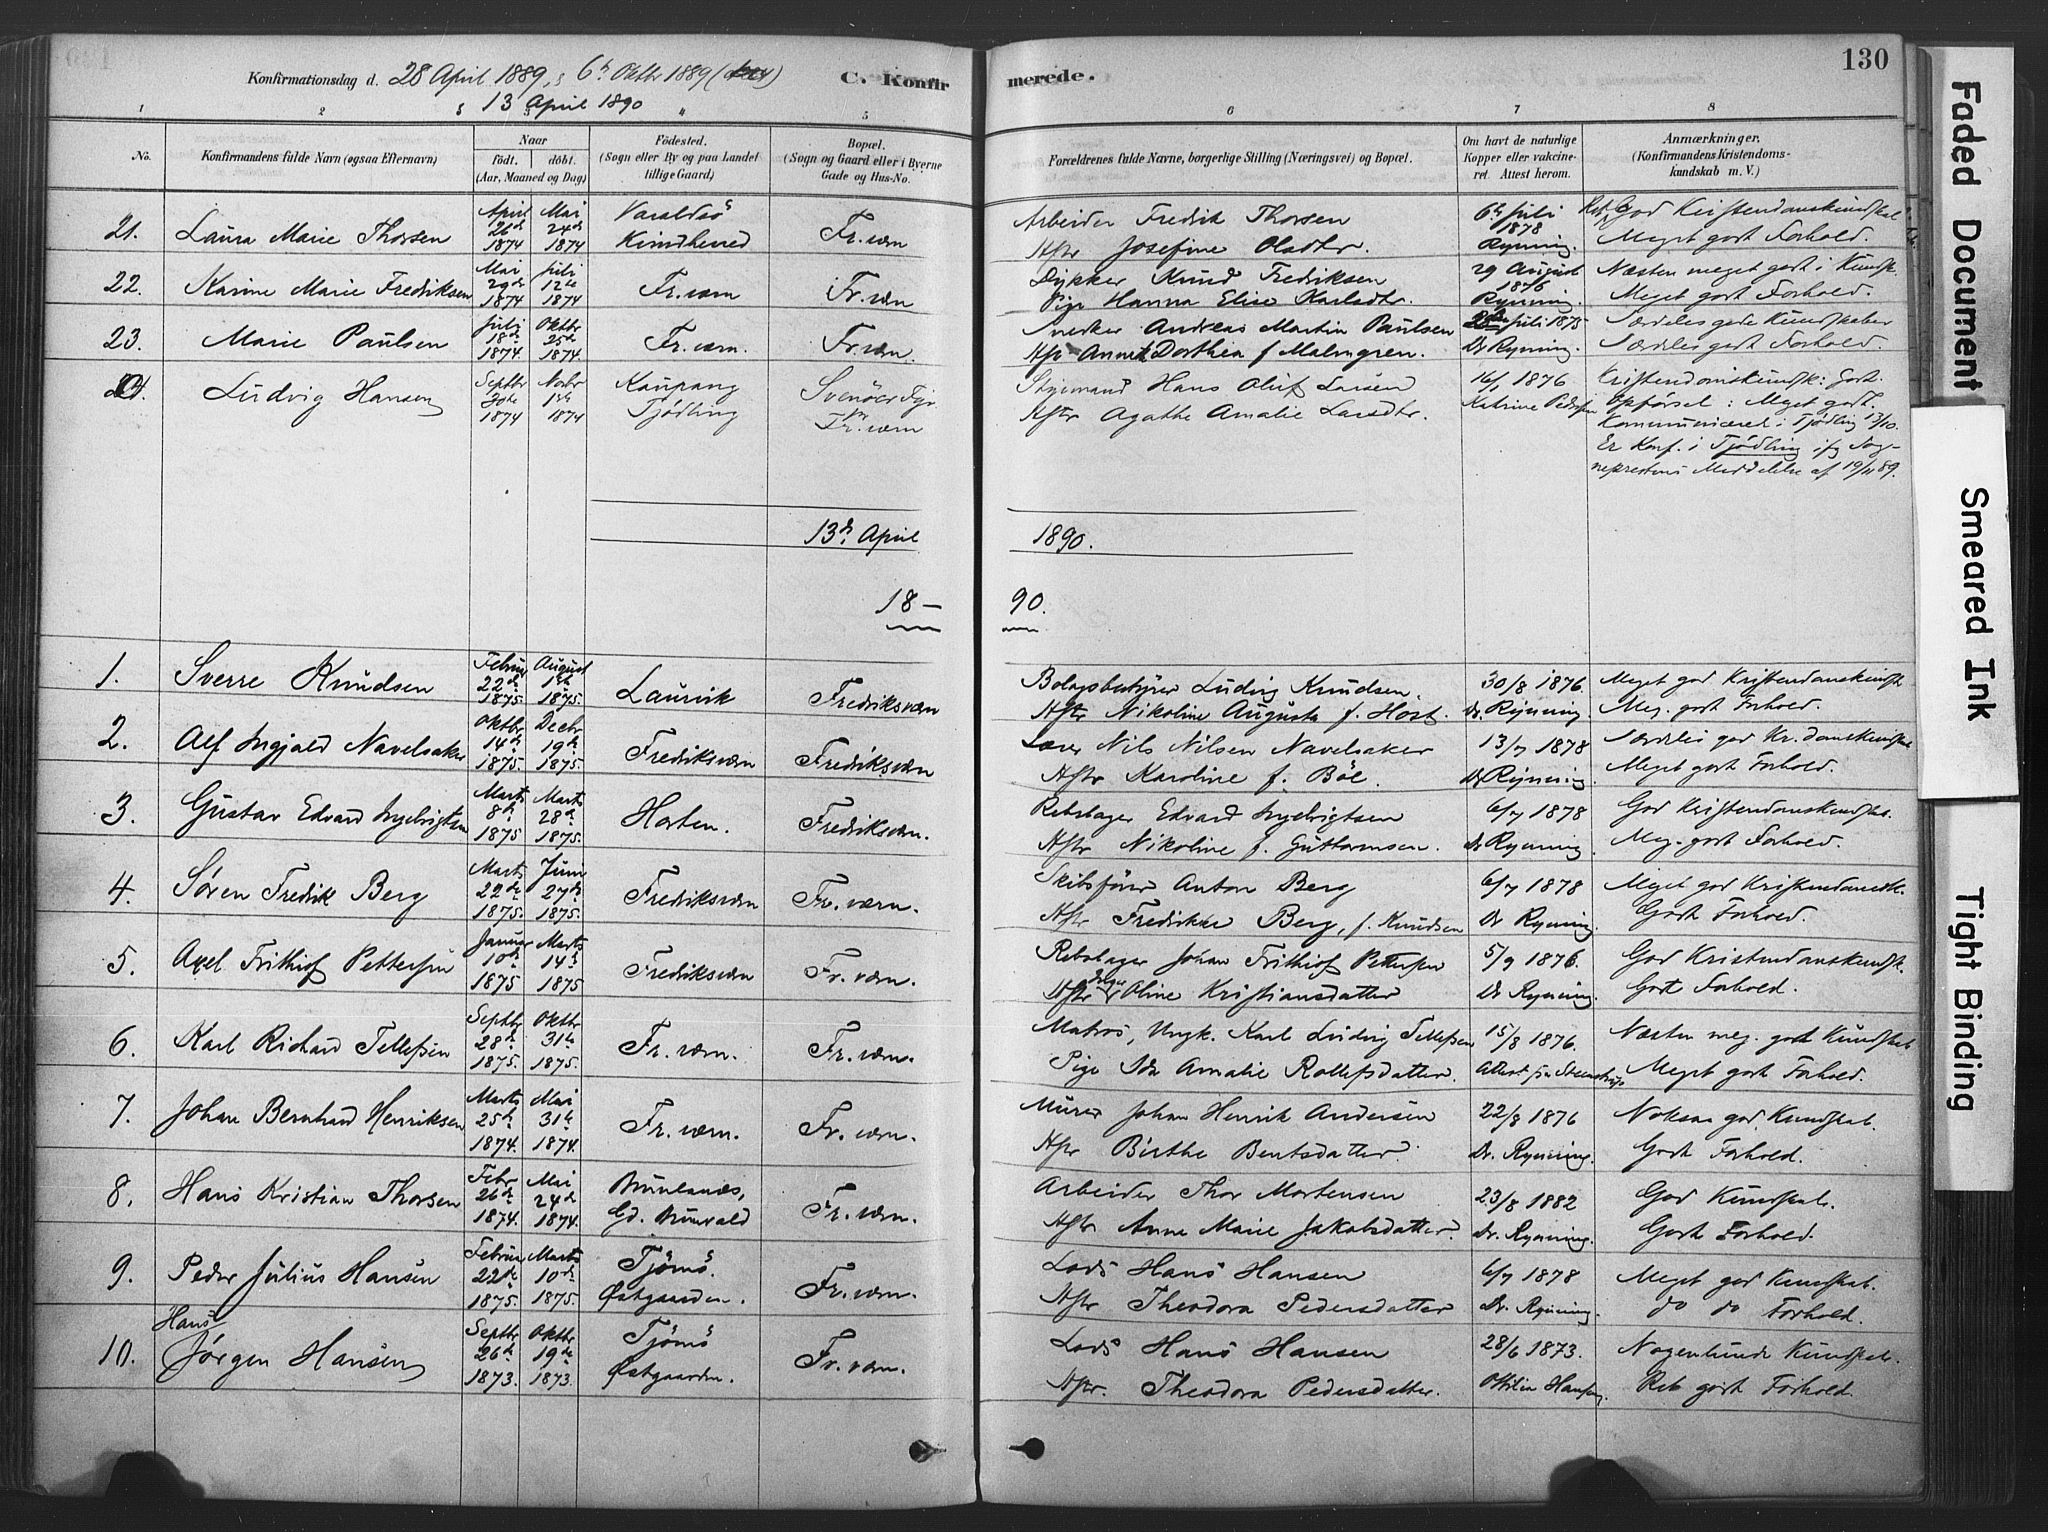 130
Konfirmationsdag d. 28 April 1889, & 6te Oktbr 1889
& 13 April 1890
C. Konfirmerede.
1 2 3 4 5 6 7 8
No.
Konfirmandens fulde Navn (ogsaa Efternavn)
Naar
födt. döbt.
(Aar, Maaned og Dag)
Födested.
(Sogn eller By og paa Landet
tillige Gaard)
Bopæl.
(Sogn og Gaard eller i Byerne
Gade og Hus-No.
Forældrenes fulde Navne, borgerlige Stilling (Næringsvei) og Bopæl.
Om havt de naturlige
Kopper eller vakcine-
ret. Attest herom.
Anmærkninger.
(Konfirmandens Kristendoms-
kundskab m. V.)
21. Laura Marie Thorsen
April 26de 1874
Mai 24de 1874
Varaldsö
Fr.værn
Arbeider Fredrik Thorsen
Hstr Josefine Olsdtr.
6te Juli
1878
Rynning.
God Kristendomskundskab
Meget godt Forhold.
22. Karine Marie Fredriksen
Mai 29de 1874
Juli 12te 1874
Fr.værn
Fr.værn
Dykker Knud Fredriksen
Pige Hanna Elise Karlsdtr.
29 August
1876
Rynning.
Næsten meget godt i Kundsk.
Meget godt Forhold.
23. Marie Paulsen
Juli 18de 1874
Oktbr 25de 1874.
Fr.værn.
Fr.værn.
Snedker Andreas Martin Paulsen
Hstr Dorthea f. Malmgren.
Juli 1875
Dr Rynning.
Særdeles gode Kundskaber
Særdeles godt Forhold
24. Ludvig Hansen
Septbr 20de 1874
Novbr 1ste 1874
Kaupang
Tjödling
Svenöer Fyr
Fr.værn
Styrmand Hans Oluf Larsen
Hstr Agathe Amalie Larsdtr.
1876
Katrine Pedersen
Kristendomskundsk: Godt.
Opförsel: Meget godt.
Kommuniceret i Tjödling 13/10.
Er Konf. i Tjödling ifg Sog-
neprestens Meddelelse af 19/11 89.
13de April 1890.
18-90.
1. Sverre Knudsen
Februar 22de 1875
August 1ste 1875.
Laurvik
Fredriksværn
Bolagsbestyrer Ludvig Knudsen.
Hstr Nikoline Augusta f. Host.
30/8 1876.
Dr. Rynning.
Meget god Kristendomskundsk
Meg. godt Forhold.
2. Alf Ingjald Navelsaker
Oktbr 14de 1875.
Decbr 19de 1875.
Fredriksværn
Fredriksværn
Lærer Nils Nilsen Navelsaker
Hstr Karoline f. Böe.
13/7 1878
Dr Rynning.
Særdeles god Kr.domskundskab
Meget godt Forhold.
3. Gustav Edvard Ingebrigtsen
Marts 8de 1875
Marts 28de 1875.
Horten.
Fredriksværn.
Rebslager Edvard Ingebrigtsen
Hstr Nikoline f. Guttormsen.
6/7 1878
Dr Rynning.
God Kristendomskundskab.
Meg. godt Forhold.
4. Sören Fredrik Berg
Marts 22de 1875.
Juni 27de 1875.
Fredriksværn
Fr.værn.
Skibsförer Anton Berg
Hstr Fredrikke Berg, f. Knudsen
6/7 1878
Dr Rynning.
Meget god Kristendomsk.
Godt Forhold.
5. Axel Frithjof Pettersen
Januar 10de 1875
Marts 14de 1875
Fredriksværn
Fr.værn.
Rebslager Johan Frithjof Pettersen
Hstr Oline Kristiansdatter
5/9 1876.
Dr Rynning.
God Kristendomskundsk.
Godt Forhold.
6. Karl Richard Tellefsen
Septbr 28de 1875.
Oktbr 31te 1875.
Fr.værn.
Fr.værn.
Matros, Ungk. Karl Ludvig Tellefsen
Pige Ida Amalie Rollefsdatter.
15/8 1876.
Attest fra Steenstrup
Næsten meg. godt Kundskab
Meget godt Forhold.
7. Johan Bernhard Henriksen
Marts 25de 1874
Mai 31te 1874.
Fr.værn.
Fr.værn.
Murer Johan Henrik Andersen
Hstr Birthe Bentsdatter.
22/8 1876
Dr. Rynning.
Noksaa god Kundskab.
Godt Forhold.
8. Hans Kristian Thorsen
Febr 26de 1874.
Mai 24de 1874.
Brunlanes,
Fr.værn.
Arbeider Thor Mortensen
Hstr Anne Marie Jakobsdatter.
23/8 1882
Dr. Rynning.
God Kundskab.
Godt Forhold.
9. Peder Julius Hansen
Februar 22de 1875.
Marts 10de 1875.
Tjömö.
Østgaarden.
Fr.værn.
Lods Hans Hansen
Hstr Theodora Pedersdatter
6/7 1878
Dr. Rynning.
Meget god Kundskab.
do do Forhold.
10. Hans Jörgen Hansen
Septbr 26de 1873.
Oktbr 19de 1873.
Tjömö
Østgaarden.
Fr.værn.
Lods Hans Hansen
Hstr. Theodora Pedersdatter.
28/6 1873.
Ottilie Hansen,
Nogenlunde Kundskab.
Ret godt Forhold.
Faded Document
Smeared Ink
Tight Binding